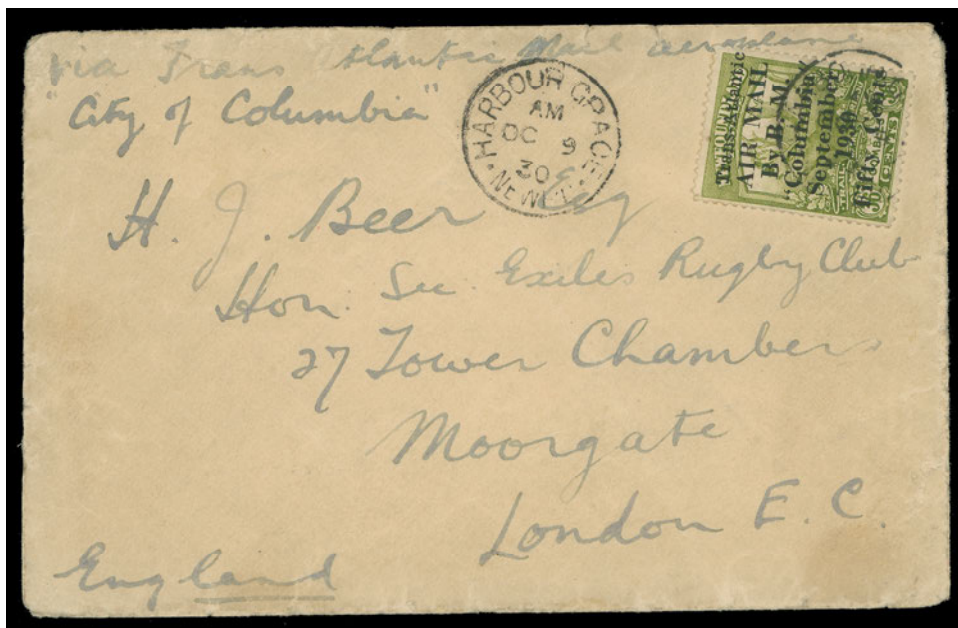 via Trans Atlantic Mail aeroplane
"City of Columbia"
HARBOUR GRACE
AM
OC 9
30
NEWF'D
Trans-Atlantic
AIR MAIL
By B. M.
"Columbia"
September
1930
Fifty Cents
H. J. Beer Esq
Hon. Sec. Exiles Rugby Club
27 Tower Chambers
Moorgate
London E. C.
England